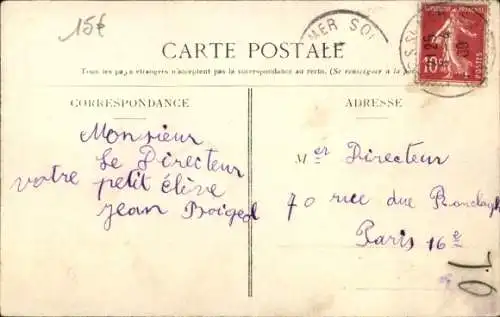 15€
MER SO
CARTE POSTALE
Tous les pays étrangers n'acceptent pas la correspondance au recto. (Se renseigner à la
CORRESPONDANCE
ADRESSE
10
POSTES
Monsieur
Le Directeur
votre petit élève
Jean
Mer Directeur
70 rue du Ranelagh
Paris 16e